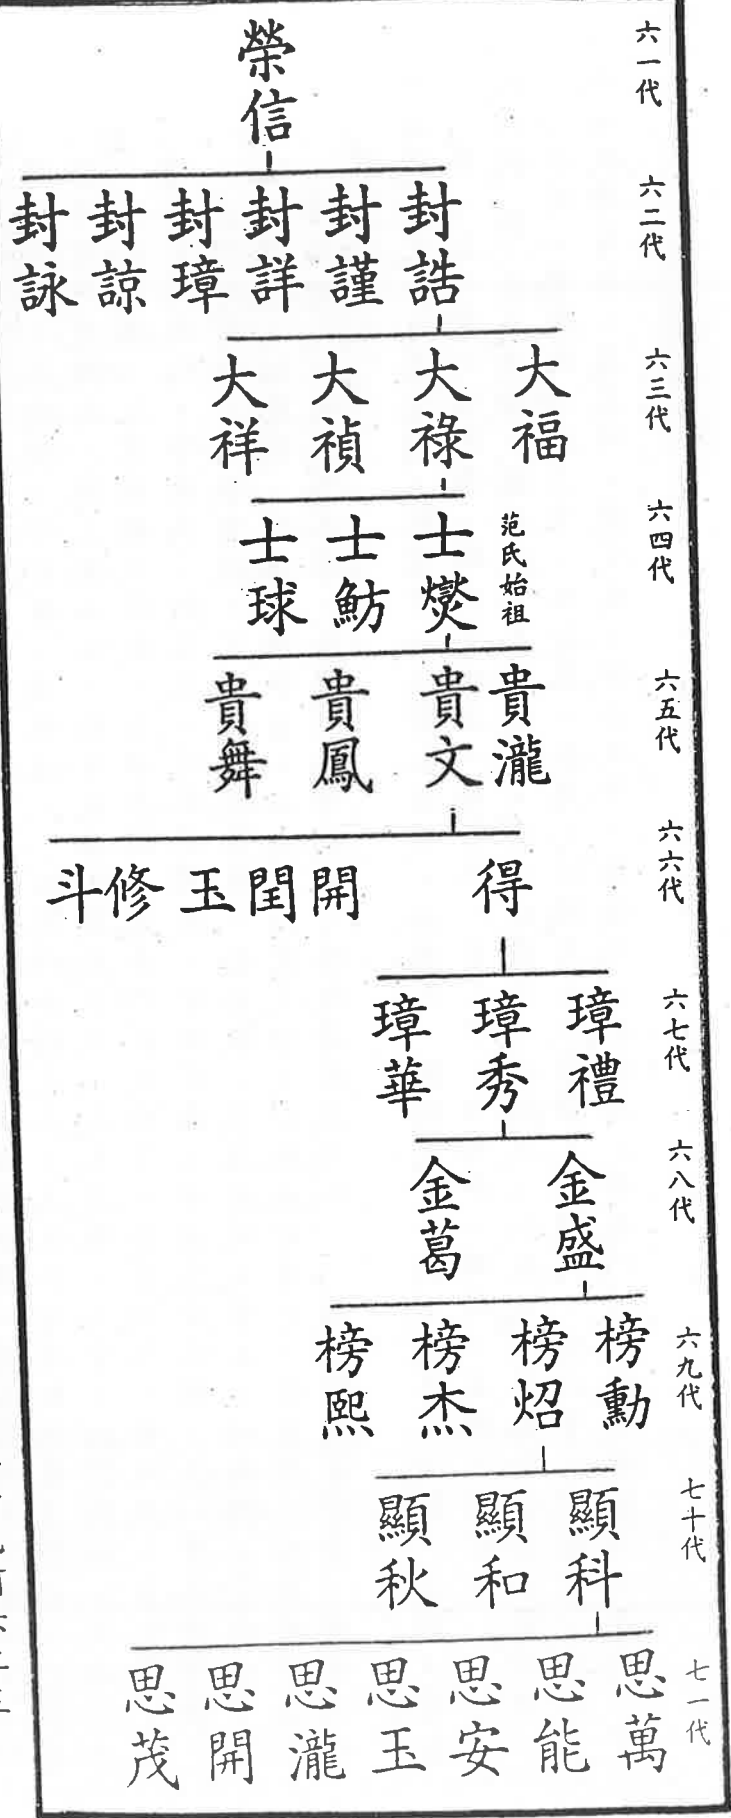 六一代
榮信
六二代
封誥
封謹
封詳
封璋
封諒
封詠
六三代
大福
大祿
大禎
大祥
六四代
范氏始祖
士爕
士魴
士球
六五代
貴瀧
貴文
貴鳳
貴舞
六六代
得
開
閏
玉
修
斗
六七代
璋禮
璋秀
璋華
六八代
金盛
金葛
六九代
榜勳
榜炤
榜杰
榜熙
七十代
顯科
顯和
顯秋
七一代
思萬
思能
思安
思玉
思瀧
思開
思茂